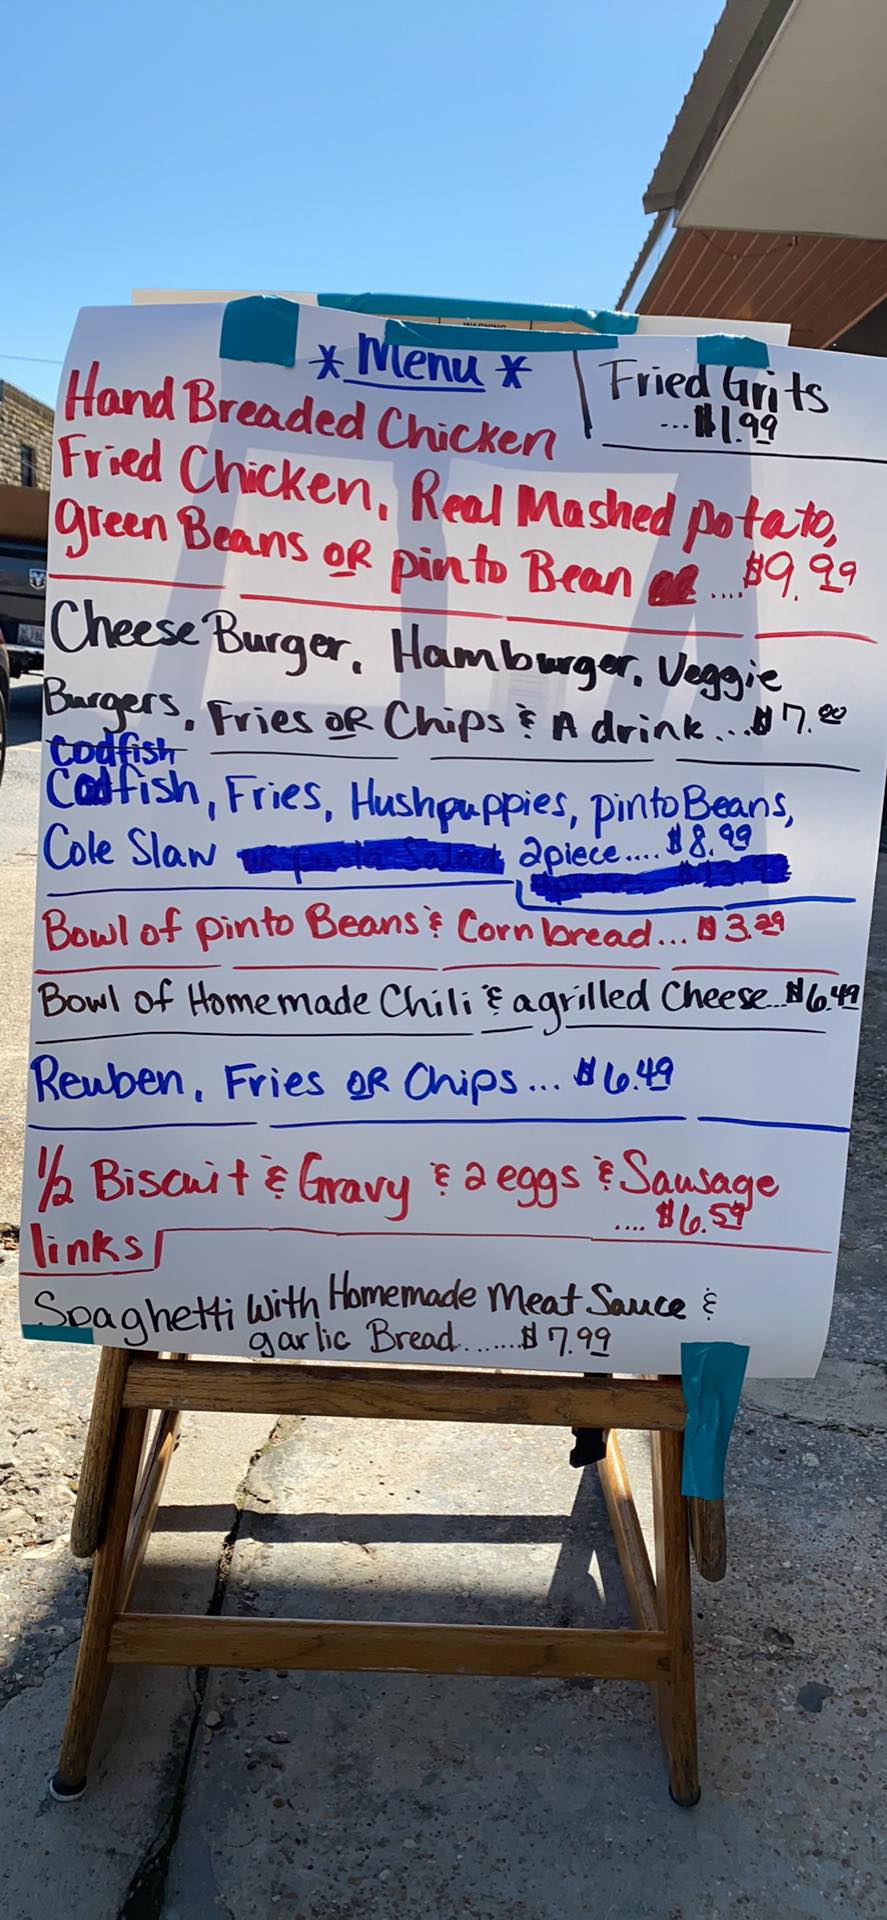 * Menu *
Fried Grits
...$1.99
Hand Breaded Chicken
Fried Chicken, Real Mashed potato,
green Beans OR pinto Bean ....$9.99
Cheese Burger, Hamburger, Veggie
Burgers, Fries OR Chips & A drink...$7.00
Codfish
Catfish, Fries, Hushpuppies, pinto Beans,
Cole Slaw or pasta Salad 2piece....$8.99
Bowl of pinto Beans & Corn bread...$3.29
Bowl of Homemade Chili & a grilled Cheese...$6.49
Reuben, Fries OR Chips...$6.49
1/2 Biscuit & Gravy & 2 eggs & Sausage
....$6.59
links
Spaghetti With Homemade Meat Sauce &
garlic Bread.......$7.99